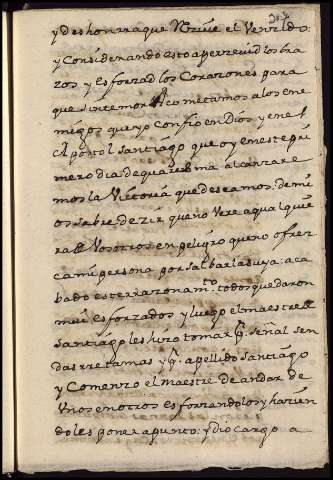 y deshonra que Recive el Vencido:
y Considerando esto apercevid los bra
zos y esforzad los Corazones para
que sin temor Acometamos a los ene
migos que yo confio en Dios y en el
Apostol Santiago que oy en este pri
mero dia de quaresma alcanzare
mos la Victoria que deseamos. de mi
os sabre dezir que no Vere a qualquie
ra de Vosotros en peligro que no ofrez
ca mi persona por salbar la suya: aca
bado este rrazonamto. todos quedaron
mui esforzados y luego el maestre de
Santiago les hizo tomar pr. señal sen
das rretamas y pr. apellido Santiago
y Comenzo el maestre de andar de
Unos en otros esforzandolos y hazien
doles poner a punto: y dio cargo a